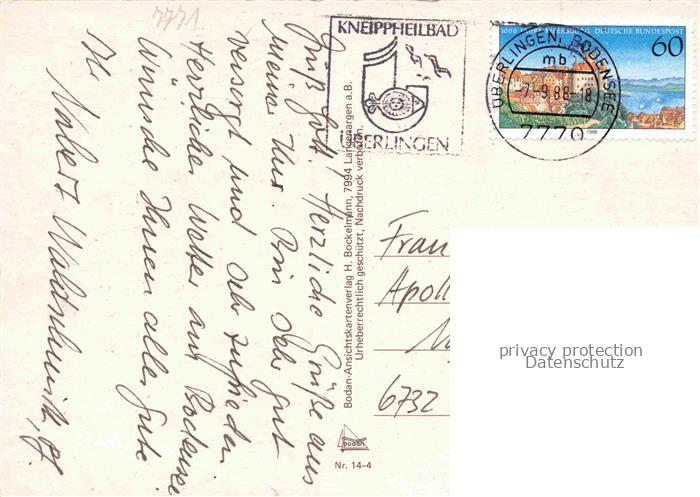 7771
KNEIPPHEILBAD
ÜBERLINGEN
1000 JAHRE MEERSBURG DEUTSCHE BUNDESPOST
60
1988
ÜBERLINGEN, BODENSEE
mb
-7.-9.88-18
7770
Grüß Gott! Herzliche Grüße aus
meiner Kur. Bin sehr gut
versorgt und sehr zufrieden.
Herrliches Wetter am Bodensee
Wünsche Ihnen alles Gute
Ihr
Bodan-Ansichtskartenverlag H. Bockelmann, 7994 Langenargen a.B.
Urheberrechtlich geschützt, Nachdruck verboten.
bodan
Nr. 14-4
Fran
Apoll
6732
privacy protection
Datenschutz